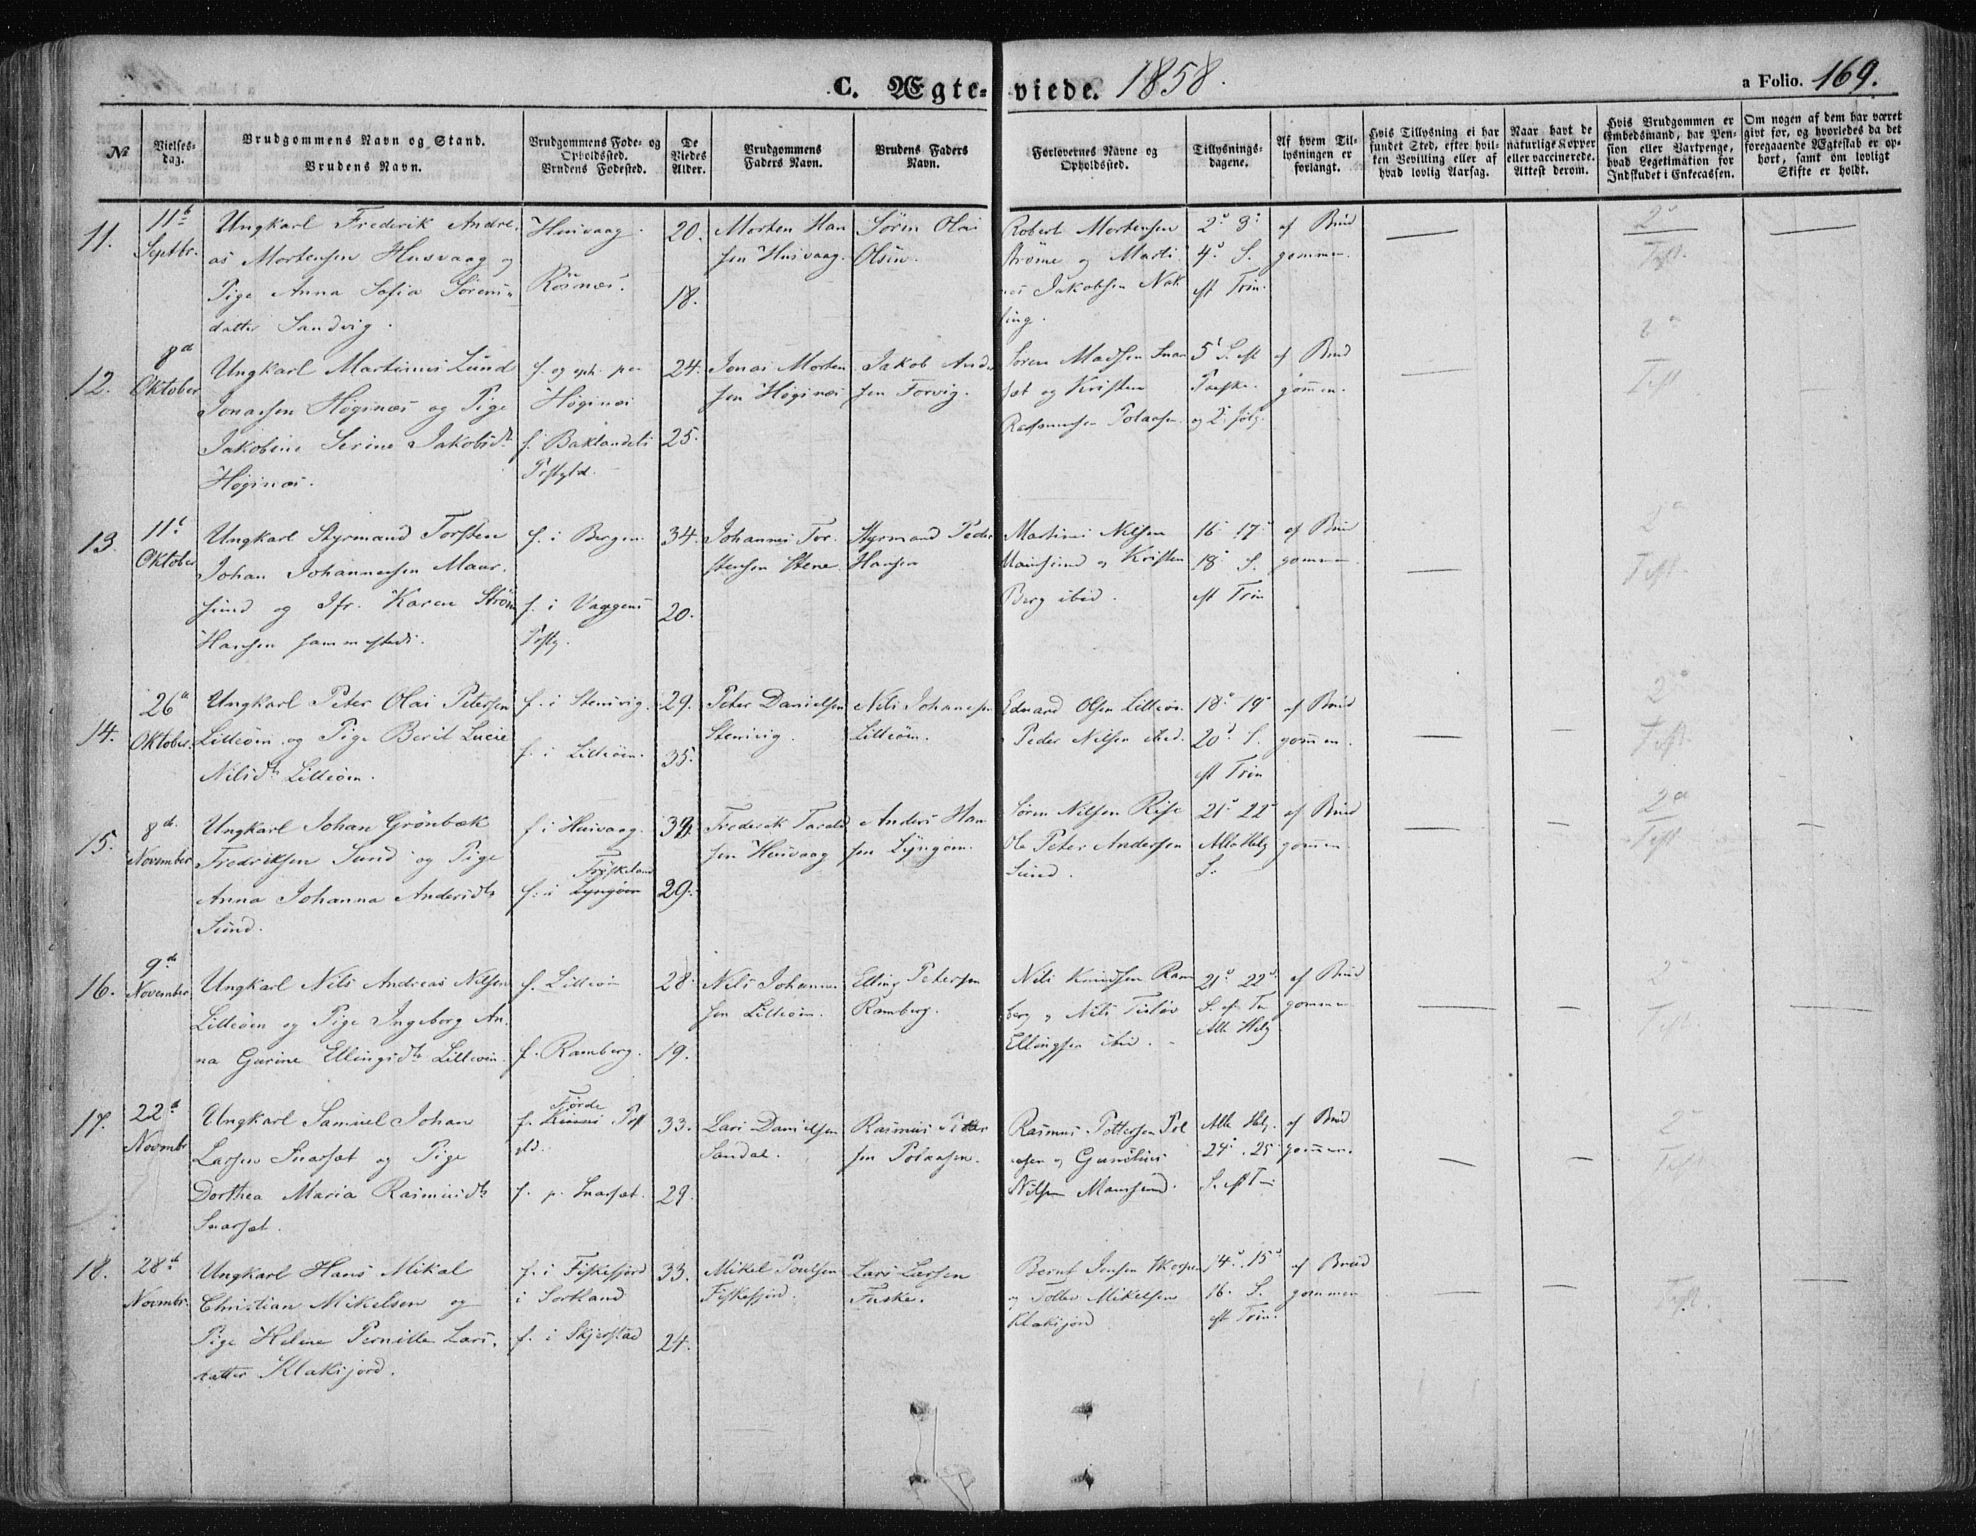 C. Ægteviede. 1858.
a Folio. 169.
№
Vielsesdag.
Brudgommens Navn og Stand.
Brudens Navn.
Brudgommens Føde- og
Opholdssted.
Brudens Fødested.
De
Viedes
Alder.
Brudgommens
Faders Navn.
Brudens Faders
Navn.
Forlovernes Navne og
Opholdssted.
Tillysningsdagene.
Af hvem Tillysningen er
forlangt.
Hvis Tillysning ei har
fundet Sted, efter hvilken Bevilling eller af
hvad lovlig Aarsag.
Naar havt de
naturlige Kopper
eller vaccinerede.
Attest derom.
Hvis Brudgommen er
Embedsmand, har Pension eller Vartpenge,
hvad Legitimation for
Indskudet i Enkecassen.
Om nogen af dem har været
givt før, og hvorledes da det
foregaaende Ægteskab er ophørt, samt om lovligt
Skifte er holdt.
11.
11t
Septbr.
Ungkarl Frederik Andreas Mortensen Husvaag og
Pige Anna Sofia Sørensdatter Sandvig.
Husvaag.
20.
18.
Morten Hansen Husvaag.
Søren Olai
Olsen.
Robert Mortensen
Strøme og Martines Jakobsen Nokling.
2. 3.
4. S.
eft Trin.
af Brudgommen.
12.
8de
Oktober
Ungkarl Martinus Lund
Jonassen Høgsnæs og Pige
Jakobine Serine Jakobsdt.
Høgsnæs.
f. og oph. paa
Høgsnæs
f. Baklandets
Præstgld.
24.
25.
Jonas Mortensen Høgsnæs
Jakob Andersen Forvig.
Søren Madsen Snarsæt og Kristen
5. S. eft
Paaske.
af Brudgommen.
13.
11t
Oktober
Ungkarl Styrmand Torsten
Johan Johannessen Maursund og Jfr. Karen Strøm
Hansen sammesteds.
f. i Bergen
f. i Vaagens
34.
20.
Johannes Torstensen Stene
Styrmand Peder
Hansen
Martines Nilsen
Maursund og Kristen
Berg ibid.
16. 17.
18. S.
eft Trin
af Brudgommen.
14.
26de
Oktober.
Ungkarl Peter Olai Petersen
Lilleøen og Pige Berit Lucie
Nilsdt. Lilleøen.
f. i Stensvig.
f. i Lilleøen.
29.
35.
Peter Danielsen
Stensvig.
Nils Johansen
Lilleøen.
Edvard Olsen Lilleøen
Peder Nilsen ibid.
18. 19.
20. S.
eft Trin
af Brudgommen.
15.
8de
November
Ungkarl Johan Grönbæk
Fredriksen Sund og Pige
Anna Johanna Andersdt.
Sund.
f. i Husvaag.
f. i Lyngøen
39.
29.
Frederik Taraldsen Husvaag
Anders Hansen Lyngøen.
Søren Nilsen Rise
Ole Peter Andersen
Sund.
21. 22.
Alle Helg
S.
af Brudgommen
16.
9de
November
Ungkarl Nils Andreas Nilsen
Lilleøen og Pige Ingeborg Anna Gurine Ellingsdt. Lilleøen.
f. Lilleøen
f. Ramberg.
28.
19.
Nils Johannsen Lilleøen.
Elling Petersen
Ramberg.
Nils Knudsen Ramberg og Nils
Ellingsen ibid.
21. 22.
Alle Helg
af Brudgommen
17.
22de
Novmbr
Ungkarl Samuel Johan
Larsen Snarsæt og Pige
Dorthea Maria Rasmusdt.
Snarsæt.
f. Førde
f. p. Snarsæt.
33.
29.
Lars Danielsen
Sandal.
Rasmus Pettersen Polaasen.
Rasmus Pettersen Polaasen og
Nilsen Maursund.
Alle Helg.
24. 25
S. eft T
af Brudgommen.
18.
28de
Novmbr.
Ungkarl Hans Mikal
Christian Mikelsen og
Pige Helene Pernille Larsdatter Klaksjord.
f. i Fiskefjord
i Sortland
f. i Skjerstad
33.
24.
Mikel Poulsen
Fiskefjord.
Lars Larsen
Fuske.
Bernt Jensen
og Toller Mikelsen
Klaksjord
14. 15.
16. S.
eft Trin.
af Brudgommen